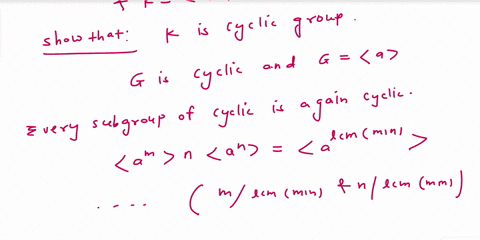 & K = <
show that: K is cyclic group.
G is cyclic and G = <a>
Every subgroup of cyclic is again cyclic.
<a^m> ∩ <a^n> = <a^lcm(m,n)>
.... (m/lcm(m,n) & n/lcm(m,n)